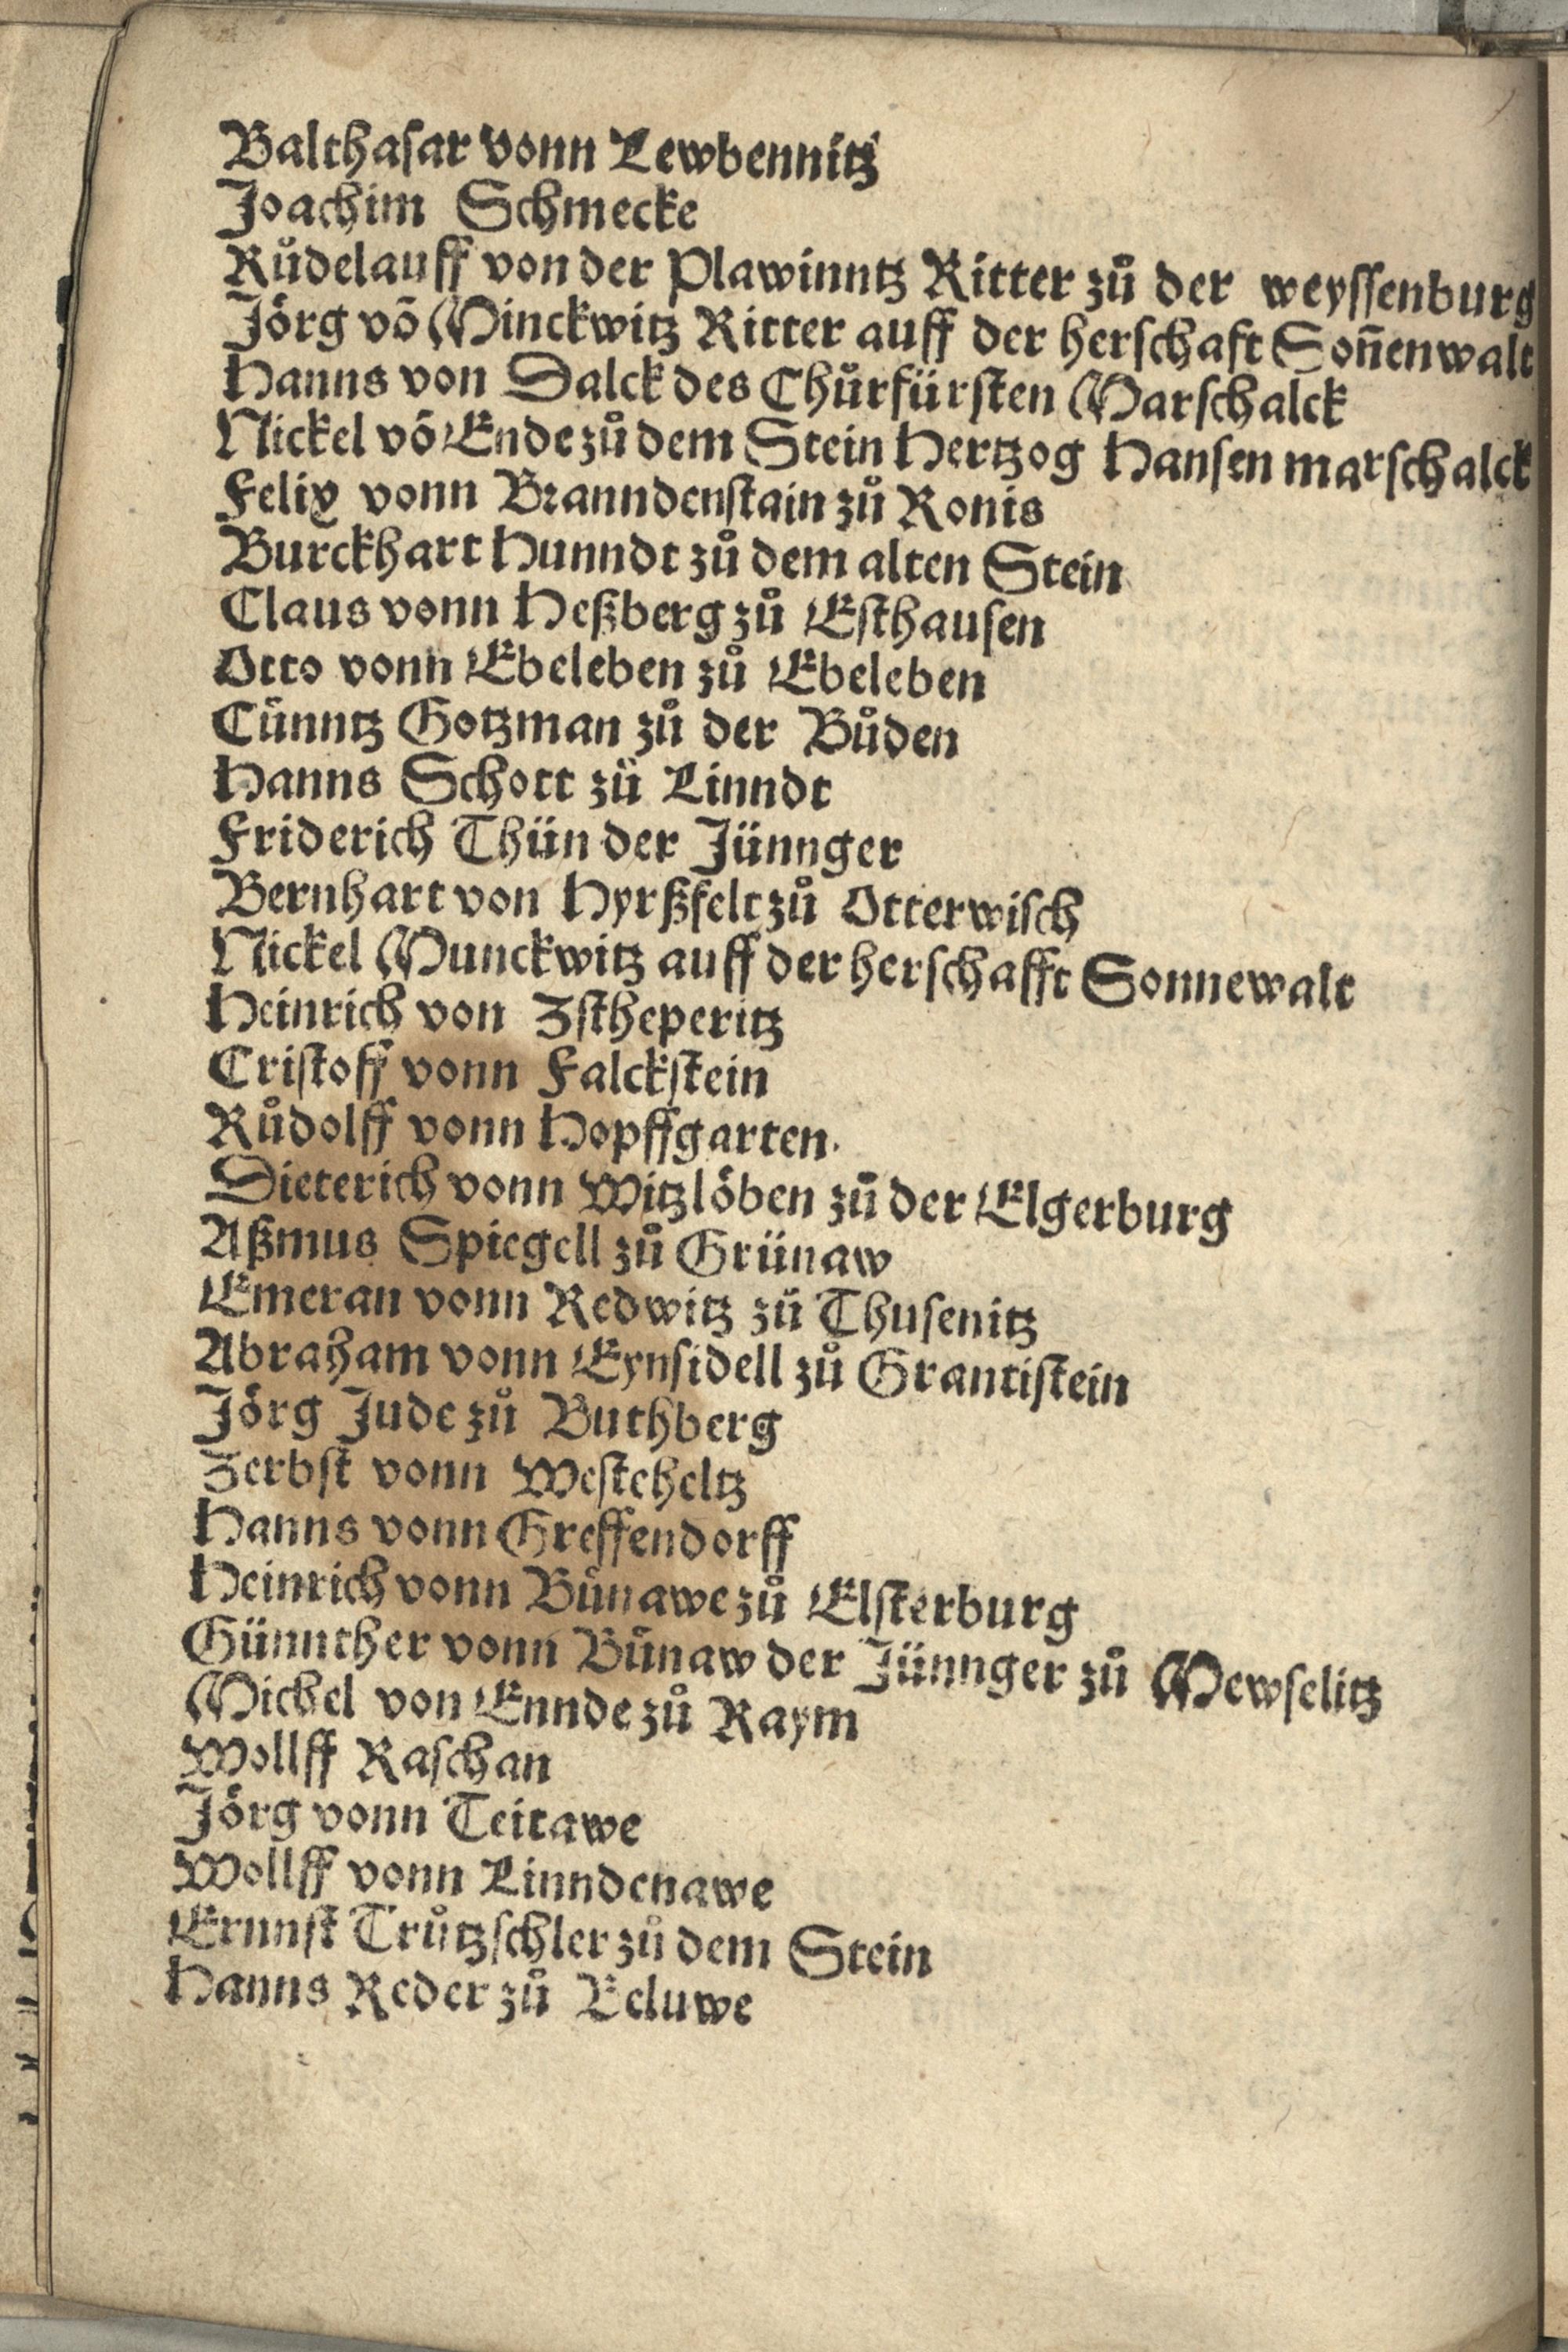 Balthasar vonn Lewbennitz
Joachim Schmecke
Růdelauff von der Plawinntz Ritter zů der weyssenburg
Jörg võ Minckwitz Ritter auff der herschaft Soñenwalt
Hanns von Dalck des Chůrfürsten Marschalck
Nickel võ Ende zů dem Stein Hertzog Hansen marschalck
Felix vonn Branndenstain zů Ronis
Burckhart Hunndt zů dem alten Stein
Claus vonn Heßberg zů Esthausen
Otto vonn Ebeleben zů Ebeleben
Cůnntz Gotzman zů der Bůden
Hanns Schott zů Linndt
Friderich Thün der Jünnger
Bernhart von Hyrßfelt zů Otterwisch
Nickel Munckwitz auff der herschafft Sonnewalt
Heinrich von Zstheperitz
Cristoff vonn Falckstein
Růdolff vonn Hopffgarten.
Dieterich vonn Witzlöben zů der Elgerburg
Aßmus Spiegell zů Grünaw
Emeran vonn Redwitz zů Thusenitz
Abraham vonn Eynsidell zů Grantistein
Jörg Jude zů Buthberg
Zerbst vonn Westeheltz
Hanns vonn Greffendorff
Heinrich vonn Bůnawe zů Elsterburg
Günnther vonn Bůnaw der Jünnger zů Mewselitz
Michel von Ennde zů Raym
Wollff Raschan
Jörg vonn Teitawe
Wollff vonn Linndenawe
Ernnst Trůtzschler zů dem Stein
Hanns Reder zů Beluwe